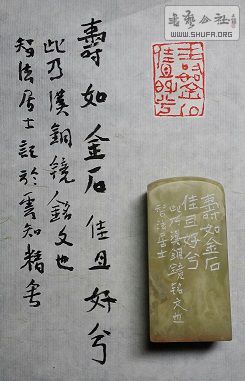 書藝公社
WWW.SHUFA.ORG
壽如金石佳且好兮
此乃漢銅鏡銘文也
智法居士記於雲知精舍
壽如金石
佳且好兮
壽如金石
佳且好兮
此乃漢銅鏡銘文也
智法居士